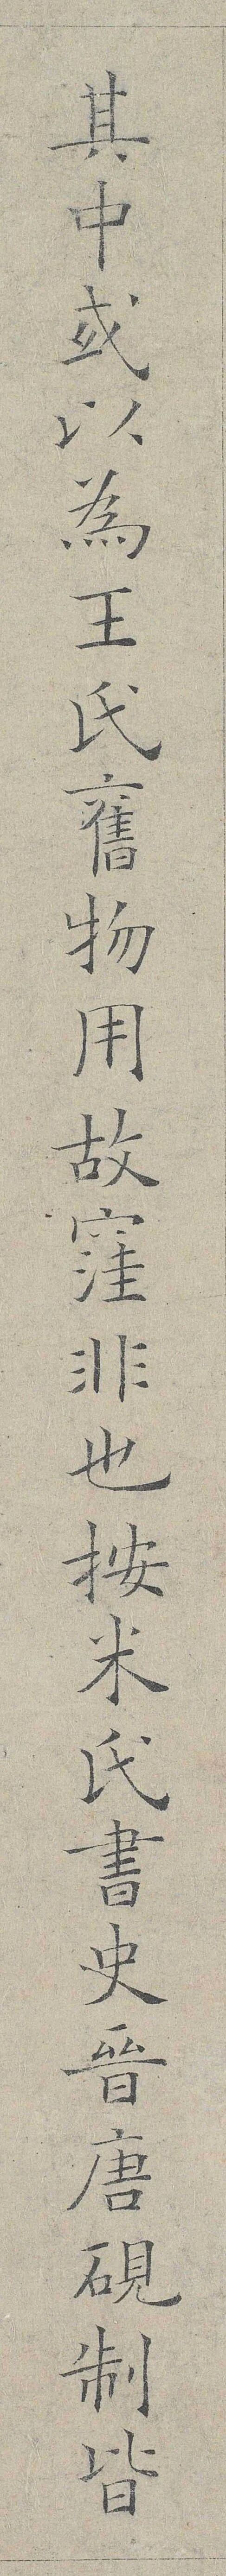 其中或以為王氏舊物用故窪非也按米氏書史晉唐硯制皆